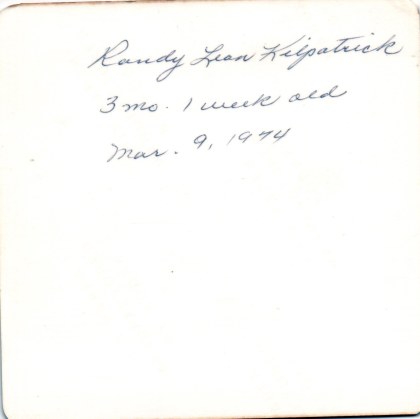 Randy Leon Kilpatrick
3 mo. 1 week old
Mar. 9, 1974